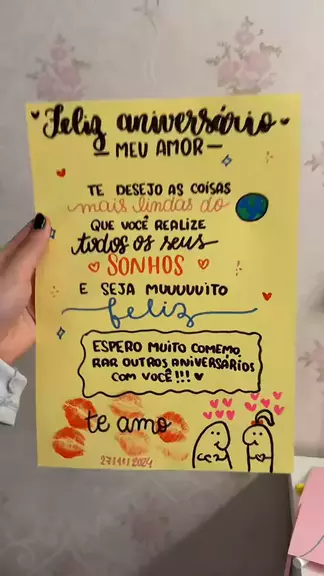 Feliz aniversário
- MEU AMOR -
TE DESEJO AS COISAS
mais lindas do
QUE VOCÊ REALIZE
todos os seus
SONHOS
E SEJA MUUUUUITO
feliz
ESPERO MUITO COMEMO
RAR OUTROS ANIVERSÁRIOS
COM VOCÊ!!!
te amo
27/11/2024